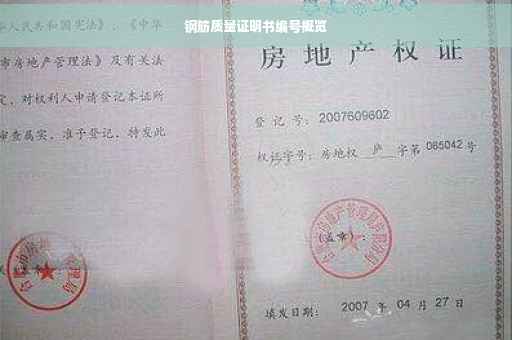 钢筋质量证明书编号概览
华人民共和国宪法》、《中华
市房地产管理法》及有关法
定,对权利人申请登记本证所
审查属实,准予登记,特发此
房地产权证
登记号:2007609602
权证字号:房地权 庐 字第 065042 号
(盖章):
填发日期:2007 年 04 月 27 日